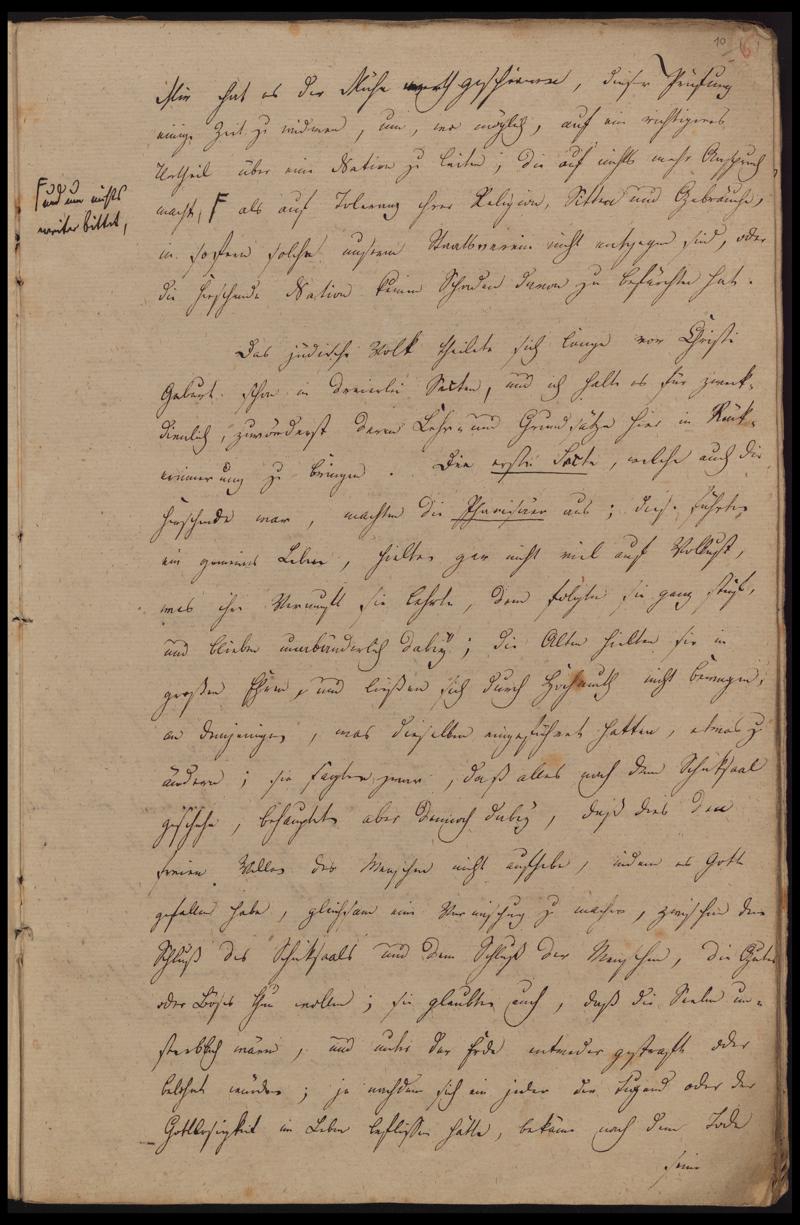 10
6
Mir hat es der Mühe werth geschienen, dieser Prüfung
einige Zeit zu widmen, um, wo möglich, auf ein richtigeres
Urtheil über eine Nation zu leiten, die auf nichts mehr Anspruch
macht, F als auf Toleranz ihrer Religion, Sitten und Gebräuche,
in sofern solche unserem Staatsverein nicht entgegen sind, oder
die herschende Nation keinen Schaden davon zu befürchten hat.
F und um nichts
weiter bittet,
Das jüdische Volk theilete sich lange vor Christi
Geburt schon in dreierlei Secten, und ich halte es für zweck-
dienlich, zuvörderst deren Lehr- und Grundsätze hier in Rük-
erinnerung zu bringen. Die erste Secte, welche auch die
herschende war, machten die Pharisäer aus; diese führten
ein gemeines Leben, hielten gar nicht viel auf Wollust,
was ihre Vernunft sie lehrte, dem folgten sie ganz
und blieben unabänderlich dabey; die Alten hielten sie in
großen Ehren, und ließen sich durch Hochmuth nicht bewegen,
an demjenigen, was dieselben eingeführet hatten, etwas zu
ändern; sie sagten zwar, daß alles nach dem Schiksaal
geschehe, behaupteten aber dennoch dabey, daß dies den
freien Willen des Menschen nicht aufhebe, indem es Gott
gefallen habe, gleichsam eine Vermischung zu machen, zwischen dem
Schluß des Schiksaals und dem Schluß der Menschen, die Gutes
oder Böses thun wollen; sie glaubten auch, daß die Seelen un-
sterblich wären, und unter der Erde entweder gestraft oder
belohnt würden; je nachdem sich ein jeder der Tugend oder der
Gottlosigkeit im Leben beflissen hätte, bekäme nach dem Tode
seine